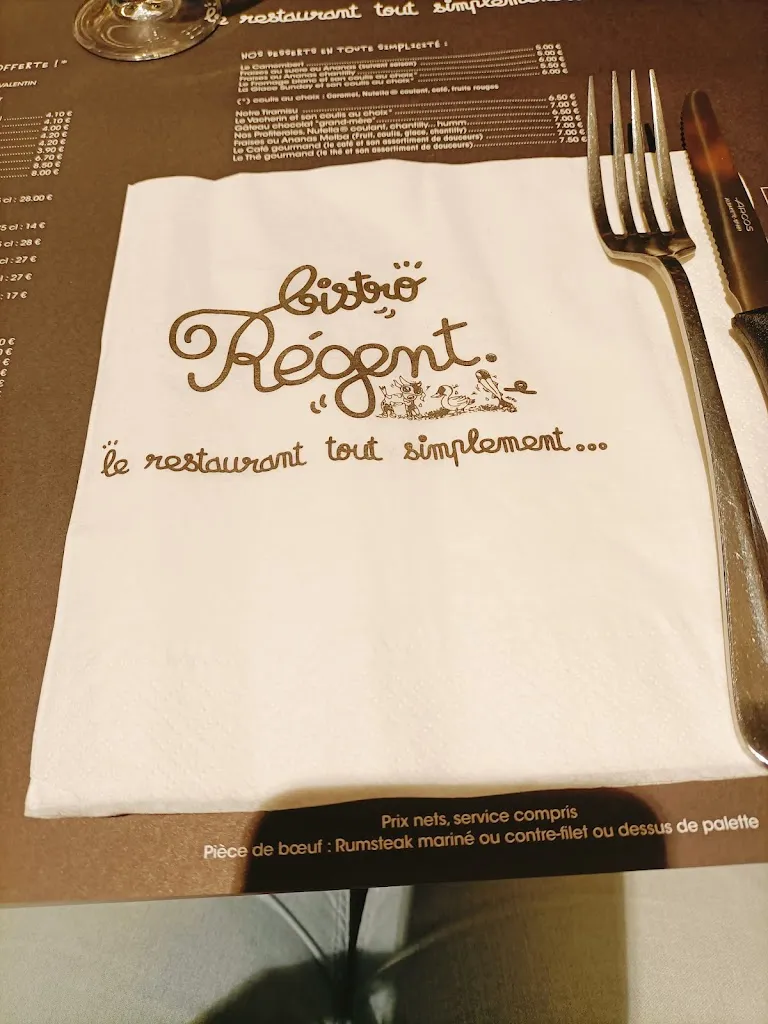 le restaurant tout simplement...
OFFERTE ! *
VALENTIN
4.10 €
4.10 €
4.00 €
4.20 €
4.20 €
3.90 €
6.70 €
8.50 €
8.00 €
cl : 28.00 €
75 cl : 14 €
cl : 28 €
cl : 27 €
cl : 27 €
: 17 €
NOS DESSERTS EN TOUTE SIMPLICITÉ :
Le Camembert 5.00 €
Fraises au sucre ou Ananas (suivant saison) 6.00 €
Fraises ou Ananas chantilly 6.50 €
Le Fromage blanc et son coulis au choix* 6.00 €
La Glace Sunday et son coulis au choix*
(*) coulis au choix : Caramel, Nutella® coulant, café, fruits rouges
Notre Tiramisu 6.50 €
Le Vacherin et son coulis au choix* 7.00 €
Gâteau chocolat "grand-mère" 6.50 €
Nos Profiteroles, Nutella® coulant, chantilly... humm 7.00 €
Fraises ou Ananas Melba (Fruit, coulis, glace, chantilly) 7.00 €
Le Café gourmand (le café et son assortiment de douceurs) 7.00 €
Le Thé gourmand (le thé et son assortiment de douceurs) 7.50 €
bistro
Régent.
le restaurant tout simplement...
Prix nets, service compris
Pièce de bœuf : Rumsteak mariné ou contre-filet ou dessus de palette